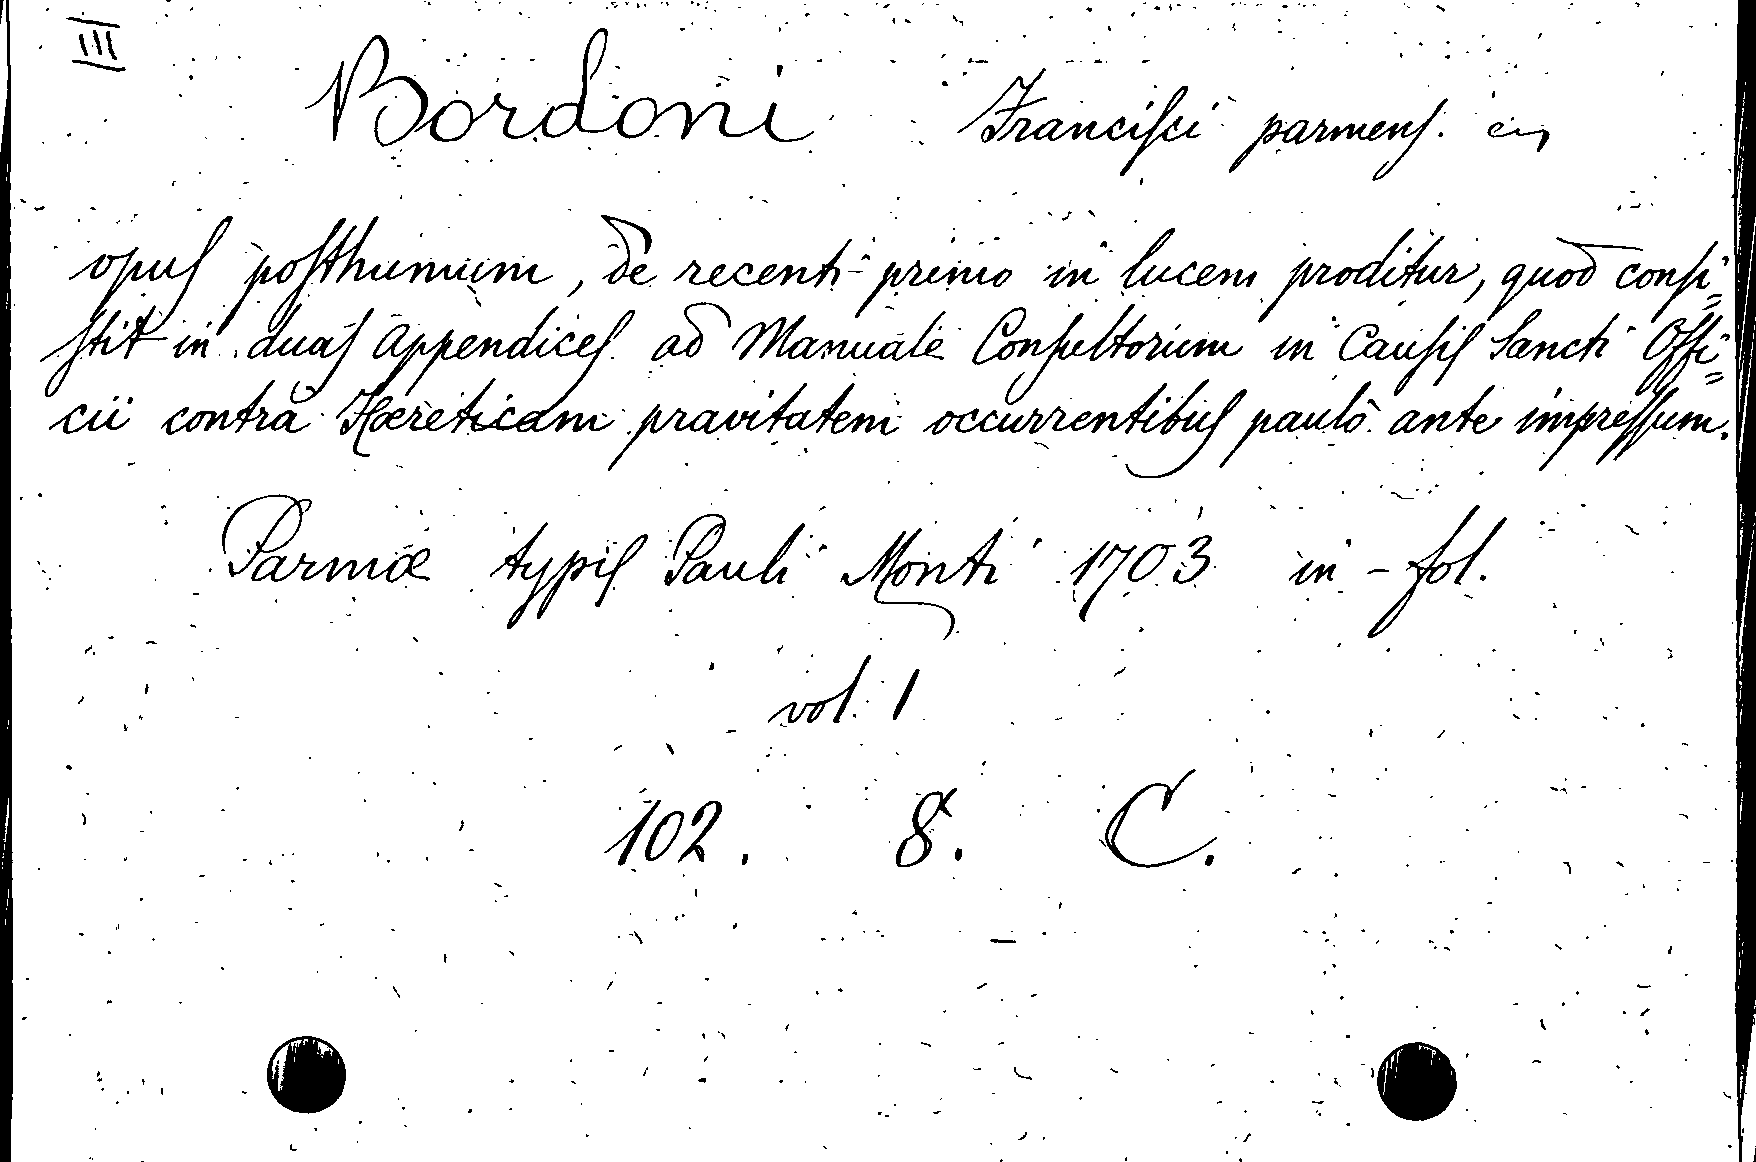 III
Bordoni Francisci parmens.
opus posthumum, de recenti primo in lucem proditur, quod consi=
stit in duas Appendices ad Manuale Consultorum in Causis Sancti Offi=
cii contrà Hæreticam pravitatem occurrentibus paulò ante impressum.
Parmæ typis Pauli Monti 1703 in-fol.
vol. 1
102. 8. C.